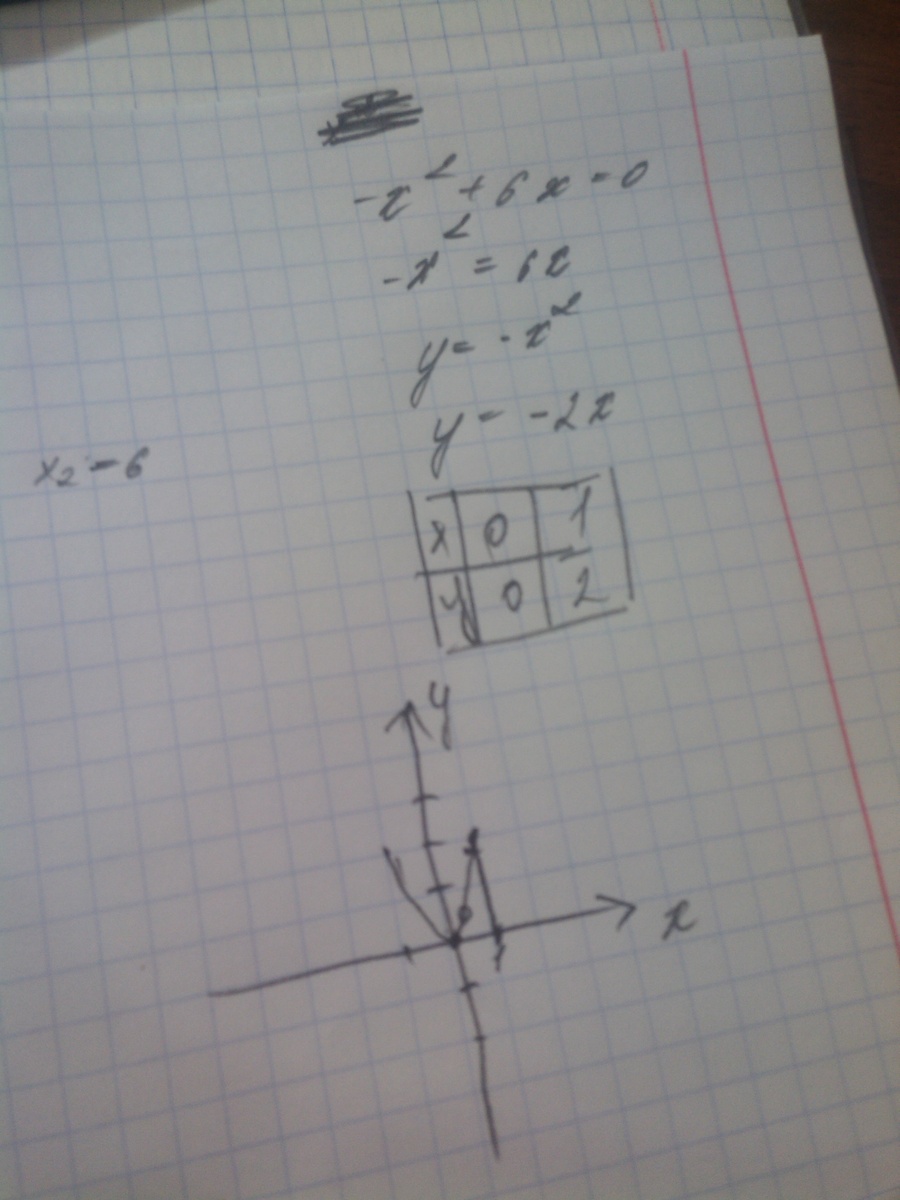 -x² + 6x = 0
-x² = 6x
y = -x²
y = -2x
x₂ = 6
x 0 1
y 0 2
y
x
0
1